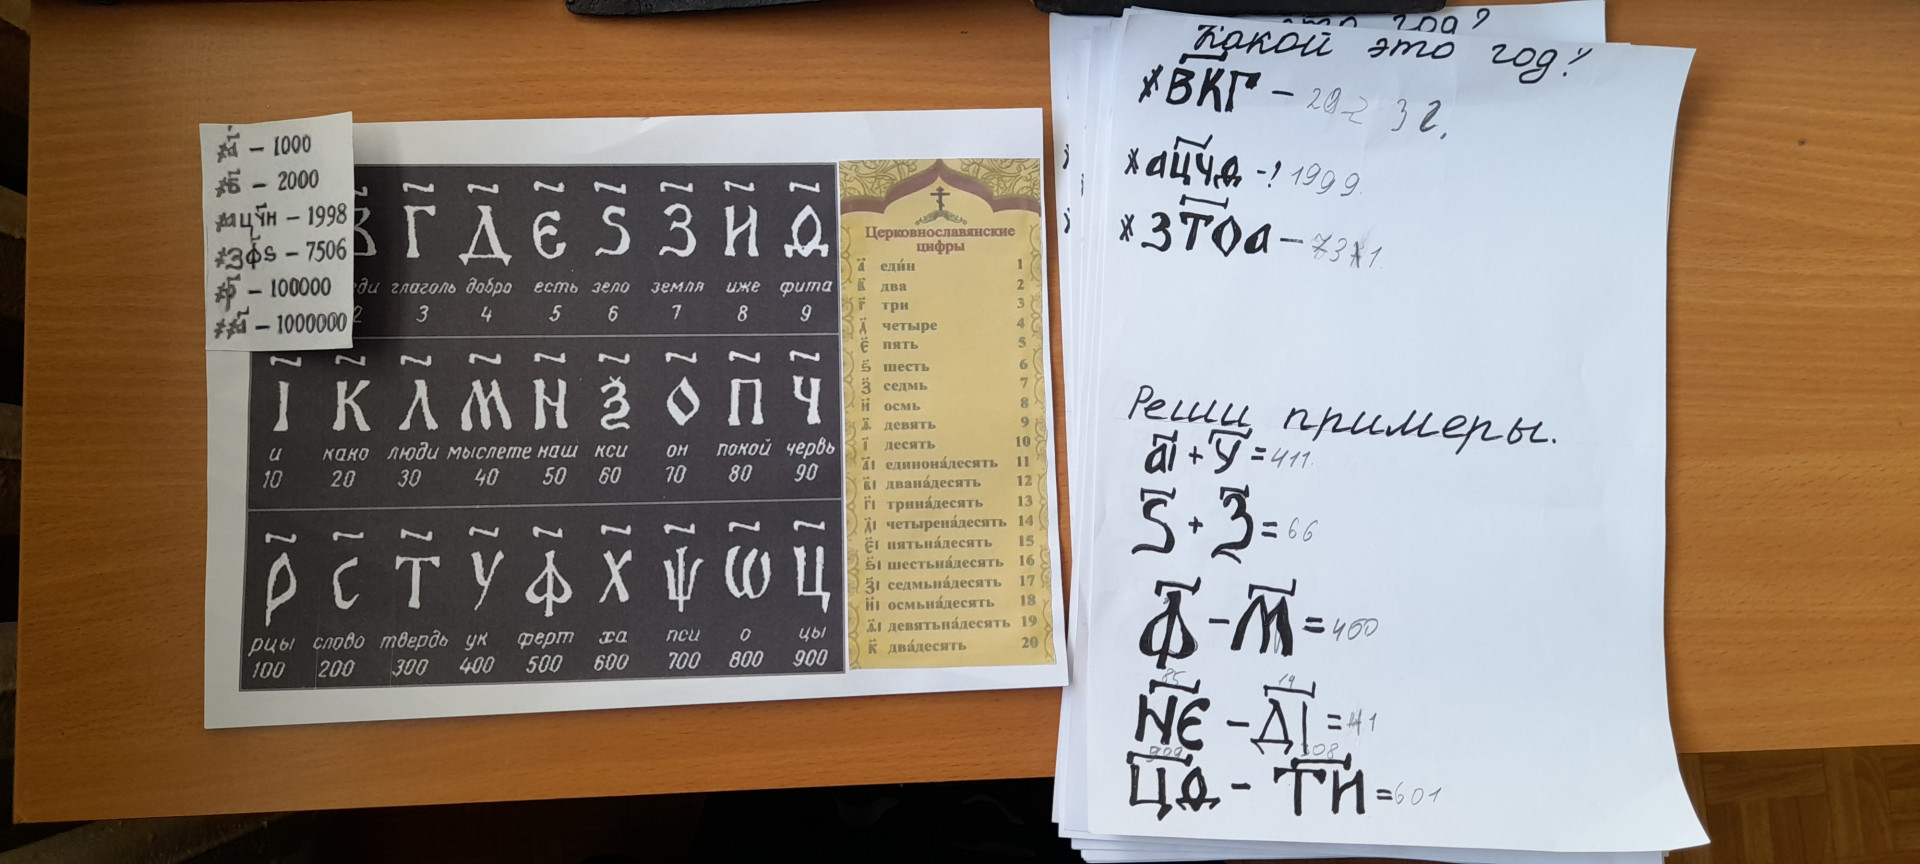 ҂а҃ – 1000
҂в҃ – 2000
҂ацч҃н – 1998
҂зф҃ѕ – 7506
҂р҃ – 100000
҂҂а҃ – 1000000
В Г Д Є Ѕ З И Ѳ
еди глаголь добро есть зело земля иже фита
2 3 4 5 6 7 8 9
І К Л М Н Ѯ О П Ч
и како люди мыслете наш кси он покой червь
10 20 30 40 50 60 70 80 90
Р С Т У Ф Х Ѱ Ѡ Ц
рцы слово твердь ук ферт ха пси о цы
100 200 300 400 500 600 700 800 900
Церковнославянские
цифры
а҃ еди́н 1
в҃ два 2
г҃ три 3
д҃ четыре 4
є҃ пять 5
ѕ҃ шесть 6
з҃ седмь 7
и҃ осмь 8
ѳ҃ девять 9
і҃ десять 10
а҃і единона́десять 11
в҃і двана́десять 12
г҃і трина́десять 13
д҃і четырена́десять 14
є҃і пятьна́десять 15
ѕ҃і шестьна́десять 16
з҃і седмьна́десять 17
и҃і осмьна́десять 18
ѳ҃і девятьна́десять 19
к҃ два́десять 20
это год?
Какой это год?
҂ВК҃Г – 3 г.
҂аЦ҃ЧѲ -? 1999.
҂ЗТ҃Оа – 7371
Реши примеры.
а҃і + У҃ = 411.
Ѕ҃ + З҃ = 66
Ф҃ – М҃ = 460
85 14
Н҃Є – Д҃І = 41
909 308
Ц҃Ѳ - Т҃И = 601